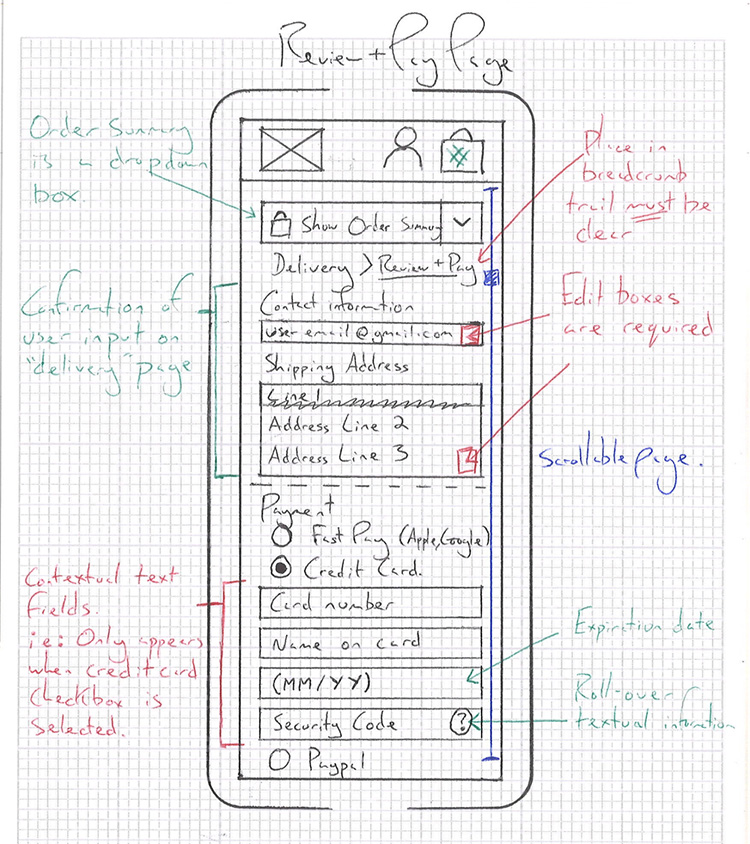 Review + Pay Page
Order Summary
is a dropdown
box.
Place in
breadcrumb
trail must be
clear
Show Order Summary
Delivery > Review + Pay
Contact information
user.email@gmail.com
Edit boxes
are required
Confirmation of
user input on
"delivery" page
Shipping Address
Line 1
Address Line 2
Address Line 3
Scrollable page.
Payment
Fast Pay (Apple, Google)
Credit Card.
Contextual text
fields.
ie: Only appears
when credit card
checkbox is
selected.
Card number
Name on card
(MM/YY)
Security Code ?
Paypal
Expiration date
Roll-over
textual information